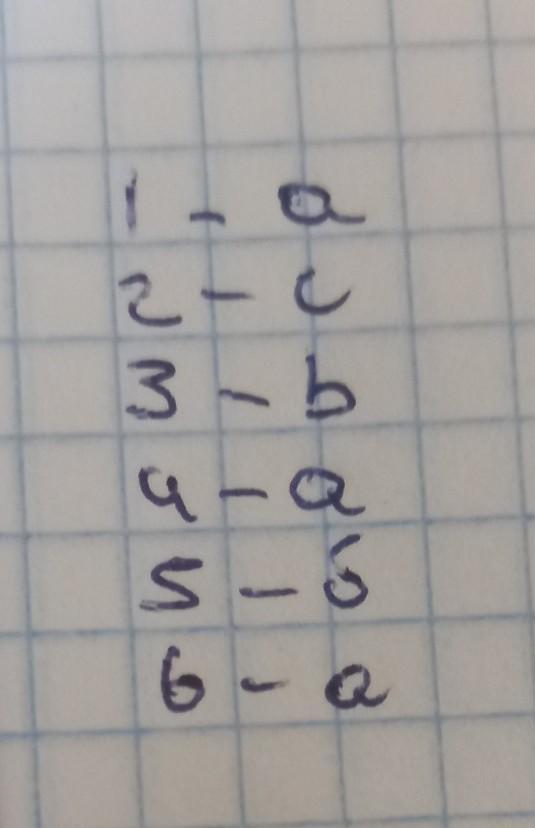 1 - a
2 - c
3 - b
4 - a
5 - b
6 - a